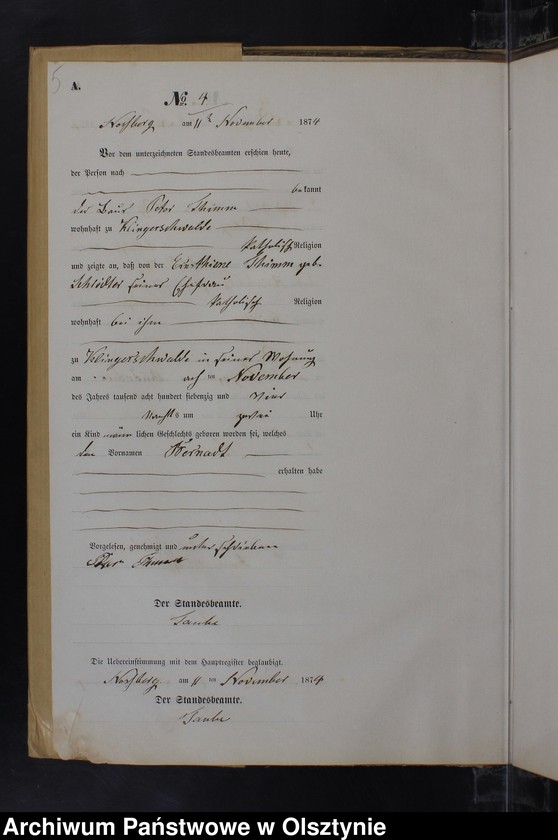 5
A.
№. 4
am 11ᵗ November 1874
Vor dem unterzeichneten Standesbeamten erschien heute,
der Person nach
bekannt
der Baur Peter
wohnhaft zu Klingerswalde
katholisch Religion
und zeigte an, daß von der geb
seiner Ehefrau
katholisch Religion
wohnhaft bei ihm
zu Klingerswalde in seiner Wohnung
am ach ten November
des Jahres tausend acht hundert siebenzig und Vier
Nachts um Uhr
ein Kind männ lichen Geschlechts geboren worden sei, welches
den Vornamen Bernadt
erhalten habe
Vorgelesen, genehmigt und unterschrieben
Der Standesbeamte.
Taube
Die Uebereinstimmung mit dem Hauptregister beglaubigt.
am 11 ten November 1874
Der Standesbeamte.
Taube
Archiwum Państwowe w Olsztynie